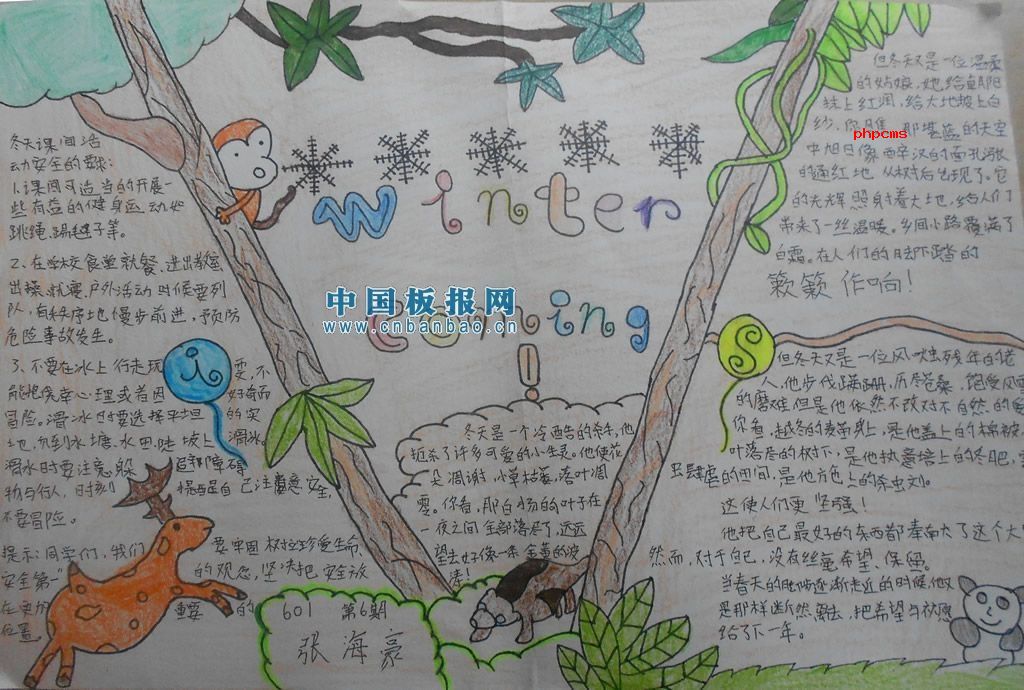 冬天课间活
动安全的要求:
1.课间可适当的开展一
些有益的健身运动如
跳绳、踢毽子等。
2、在学校食堂就餐、进出教室
出操、就寝、户外活动时候要列
队,有秩序地慢步前进,预防
危险事故发生。
3、不要在冰上行走玩耍,不
能抱侥幸心理或者因好奇而
冒险。滑冰时要选择平坦的实
地,勿到水塘、水田陡坡上滑冰。
滑冰时要注意躲避障碍
物与行人,时刻提醒自己注意安全,
不要冒险。
提示:同学们,我们要牢固树立珍爱生命,
安全第一”的观念,坚决把安全放
在更加重要的
位置。
winter
coming
!
is
中国板报网
www.cnbanbao.cn
冬天是一个冷酷的杀手,他
扼杀了许多可爱的小生灵。他使花
朵凋谢,小草枯萎,落叶凋
零。你看,那白杨的叶子在
一夜之间全部落尽了,远远
望去好像一条金黄的波
涛!
601 第6期
张海豪
但冬天又是一位温柔
的姑娘,她给朝阳
抹上红润,给大地披上白
纱,你瞧,那湛蓝的天空
phpcms
中旭日像西辛汉的面孔般
的通红地从树后出现了。它
的光辉照射着大地,给人们
带来了一丝温暖。乡间小路覆满了
白霜。在人们的脚下踏的
簌簌作响!
但冬天又是一位风吹残年的老
人,他步伐蹒跚,历尽沧桑,饱受风雨
的磨难但是他依然不改对大自然的爱
你看,越冬的麦苗身上,是他盖上的棉被,
叶落尽的树下,是他执意培上的冬肥,害
虫肆虐的田间,是他方色上的杀虫剂。
这使人们更坚强!
他把自己最好的东西都奉献了这个大
然而,对于自己,没有丝毫希望、保留。
当春天的脚步逐渐走近的时候,他又
是那样断然离去,把希望与祝愿
给了下一年。